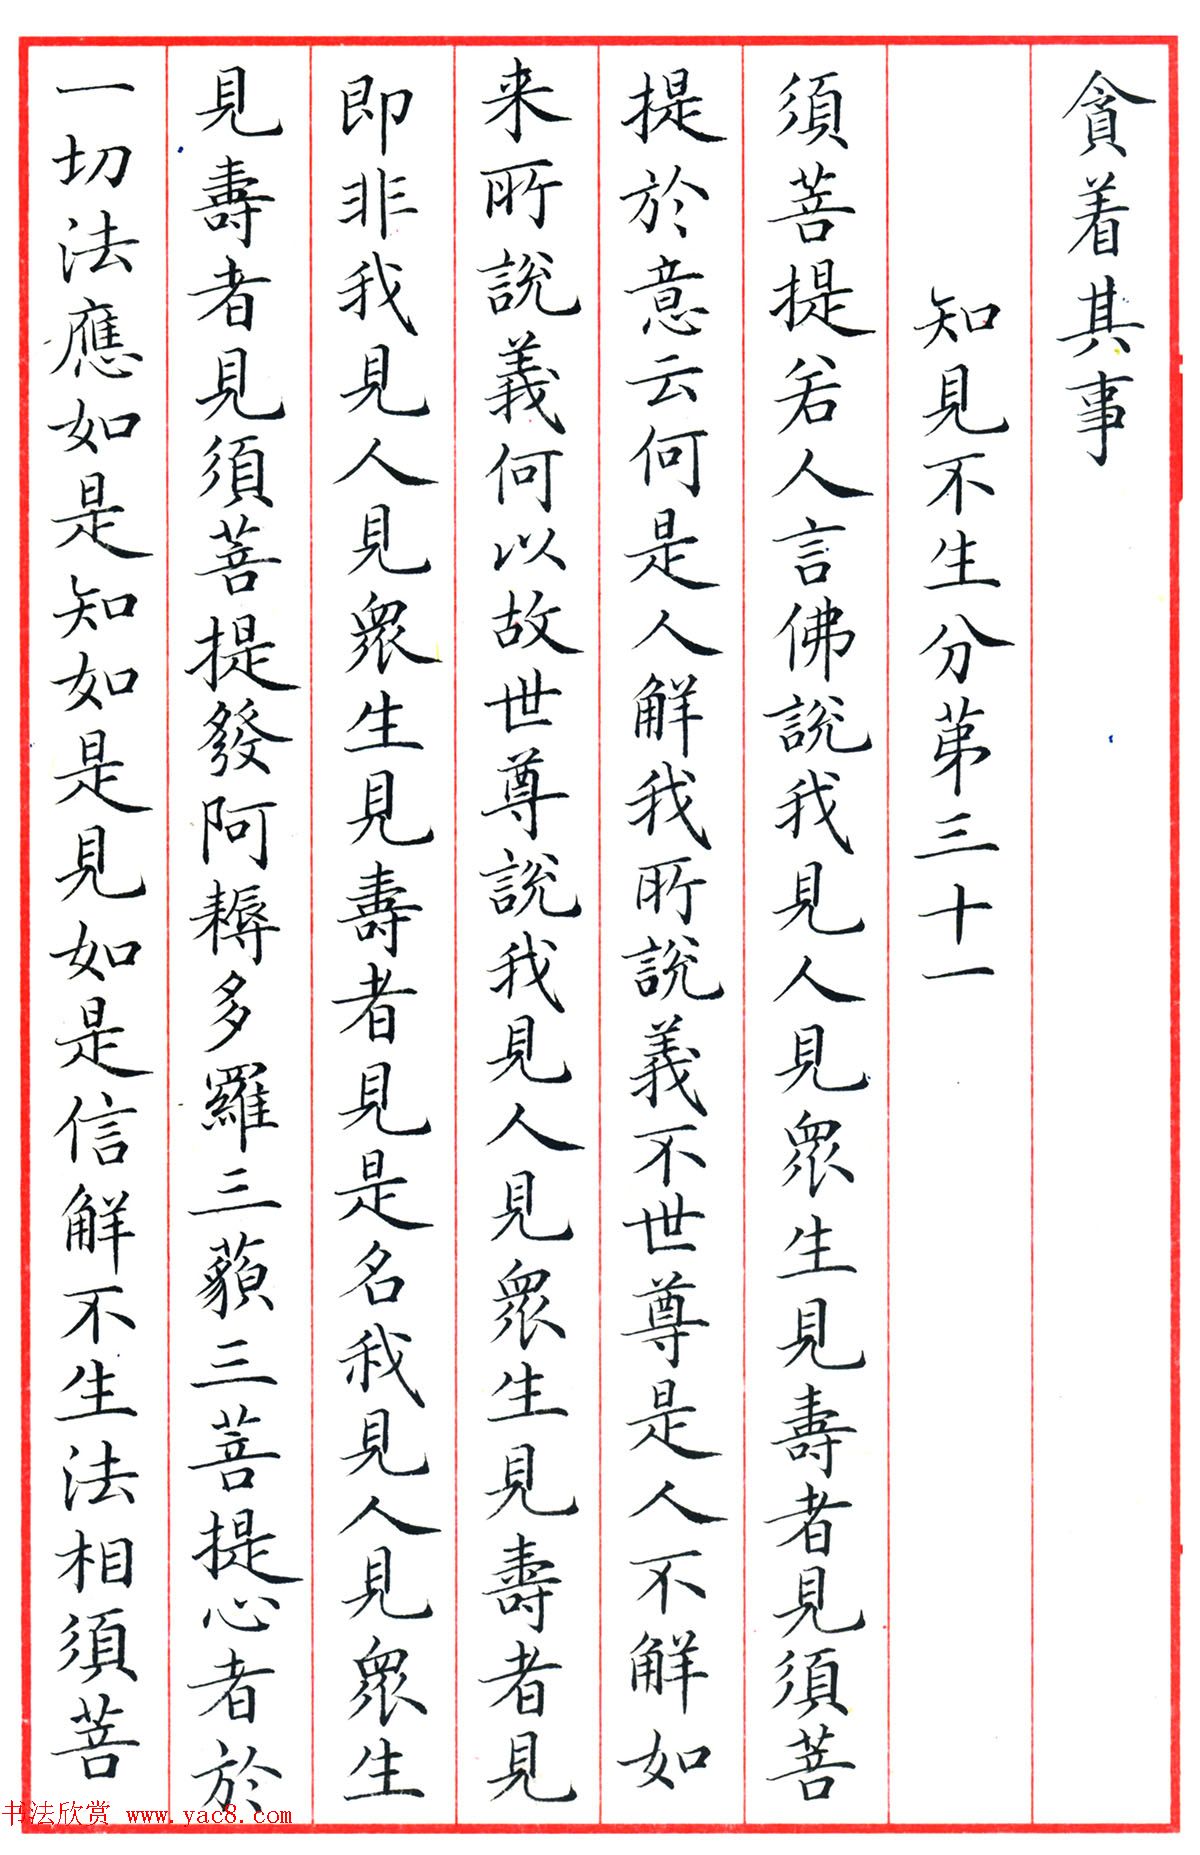 貪着其事
知見不生分第三十一
須菩提若人言佛說我見人見眾生見壽者見須菩
提於意云何是人解我所說義不世尊是人不解如
来所說義何以故世尊說我見人見眾生見壽者見
即非我見人見眾生見壽者見是名我見人見眾生
見壽者見須菩提發阿耨多羅三藐三菩提心者於
一切法應如是知如是見如是信解不生法相須菩
书法欣赏 www.yac8.com